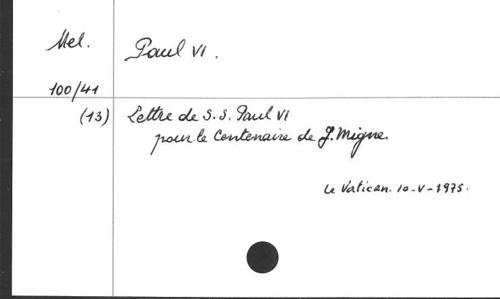 Mel.
Paul VI.
100/41
(13) Lettre de S.S. Paul VI
pour le Centenaire de J. Migne.
Le Vatican. 10-V-1975.